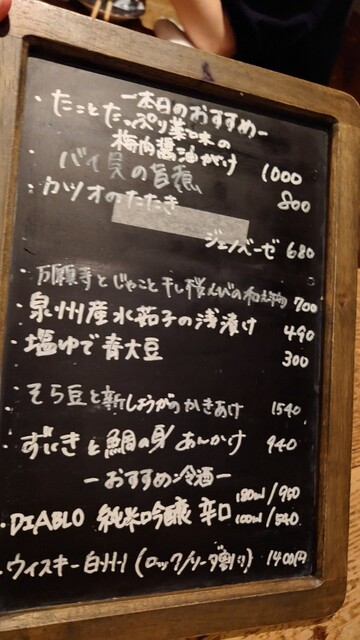 ー本日のおすすめー
・たことたっぷり薬味の
梅肉醤油がけ 1000
バイ貝の旨煮 800
・カツオのたたき
ジェノベーゼ 680
・万願寺とじゃこと干し桜えびの和え物 700
・泉州産水茄子の浅漬け 490
・塩ゆで青大豆 300
・そら豆と新しょうがのかきあげ 1540
・ずいきと鯛の身あんかけ 940
ーおすすめ冷酒ー
・DIABLO 純米吟醸 辛口 180ml/950
100ml/540
・ウィスキー白州 (ロック/ソーダ割り) 1400円